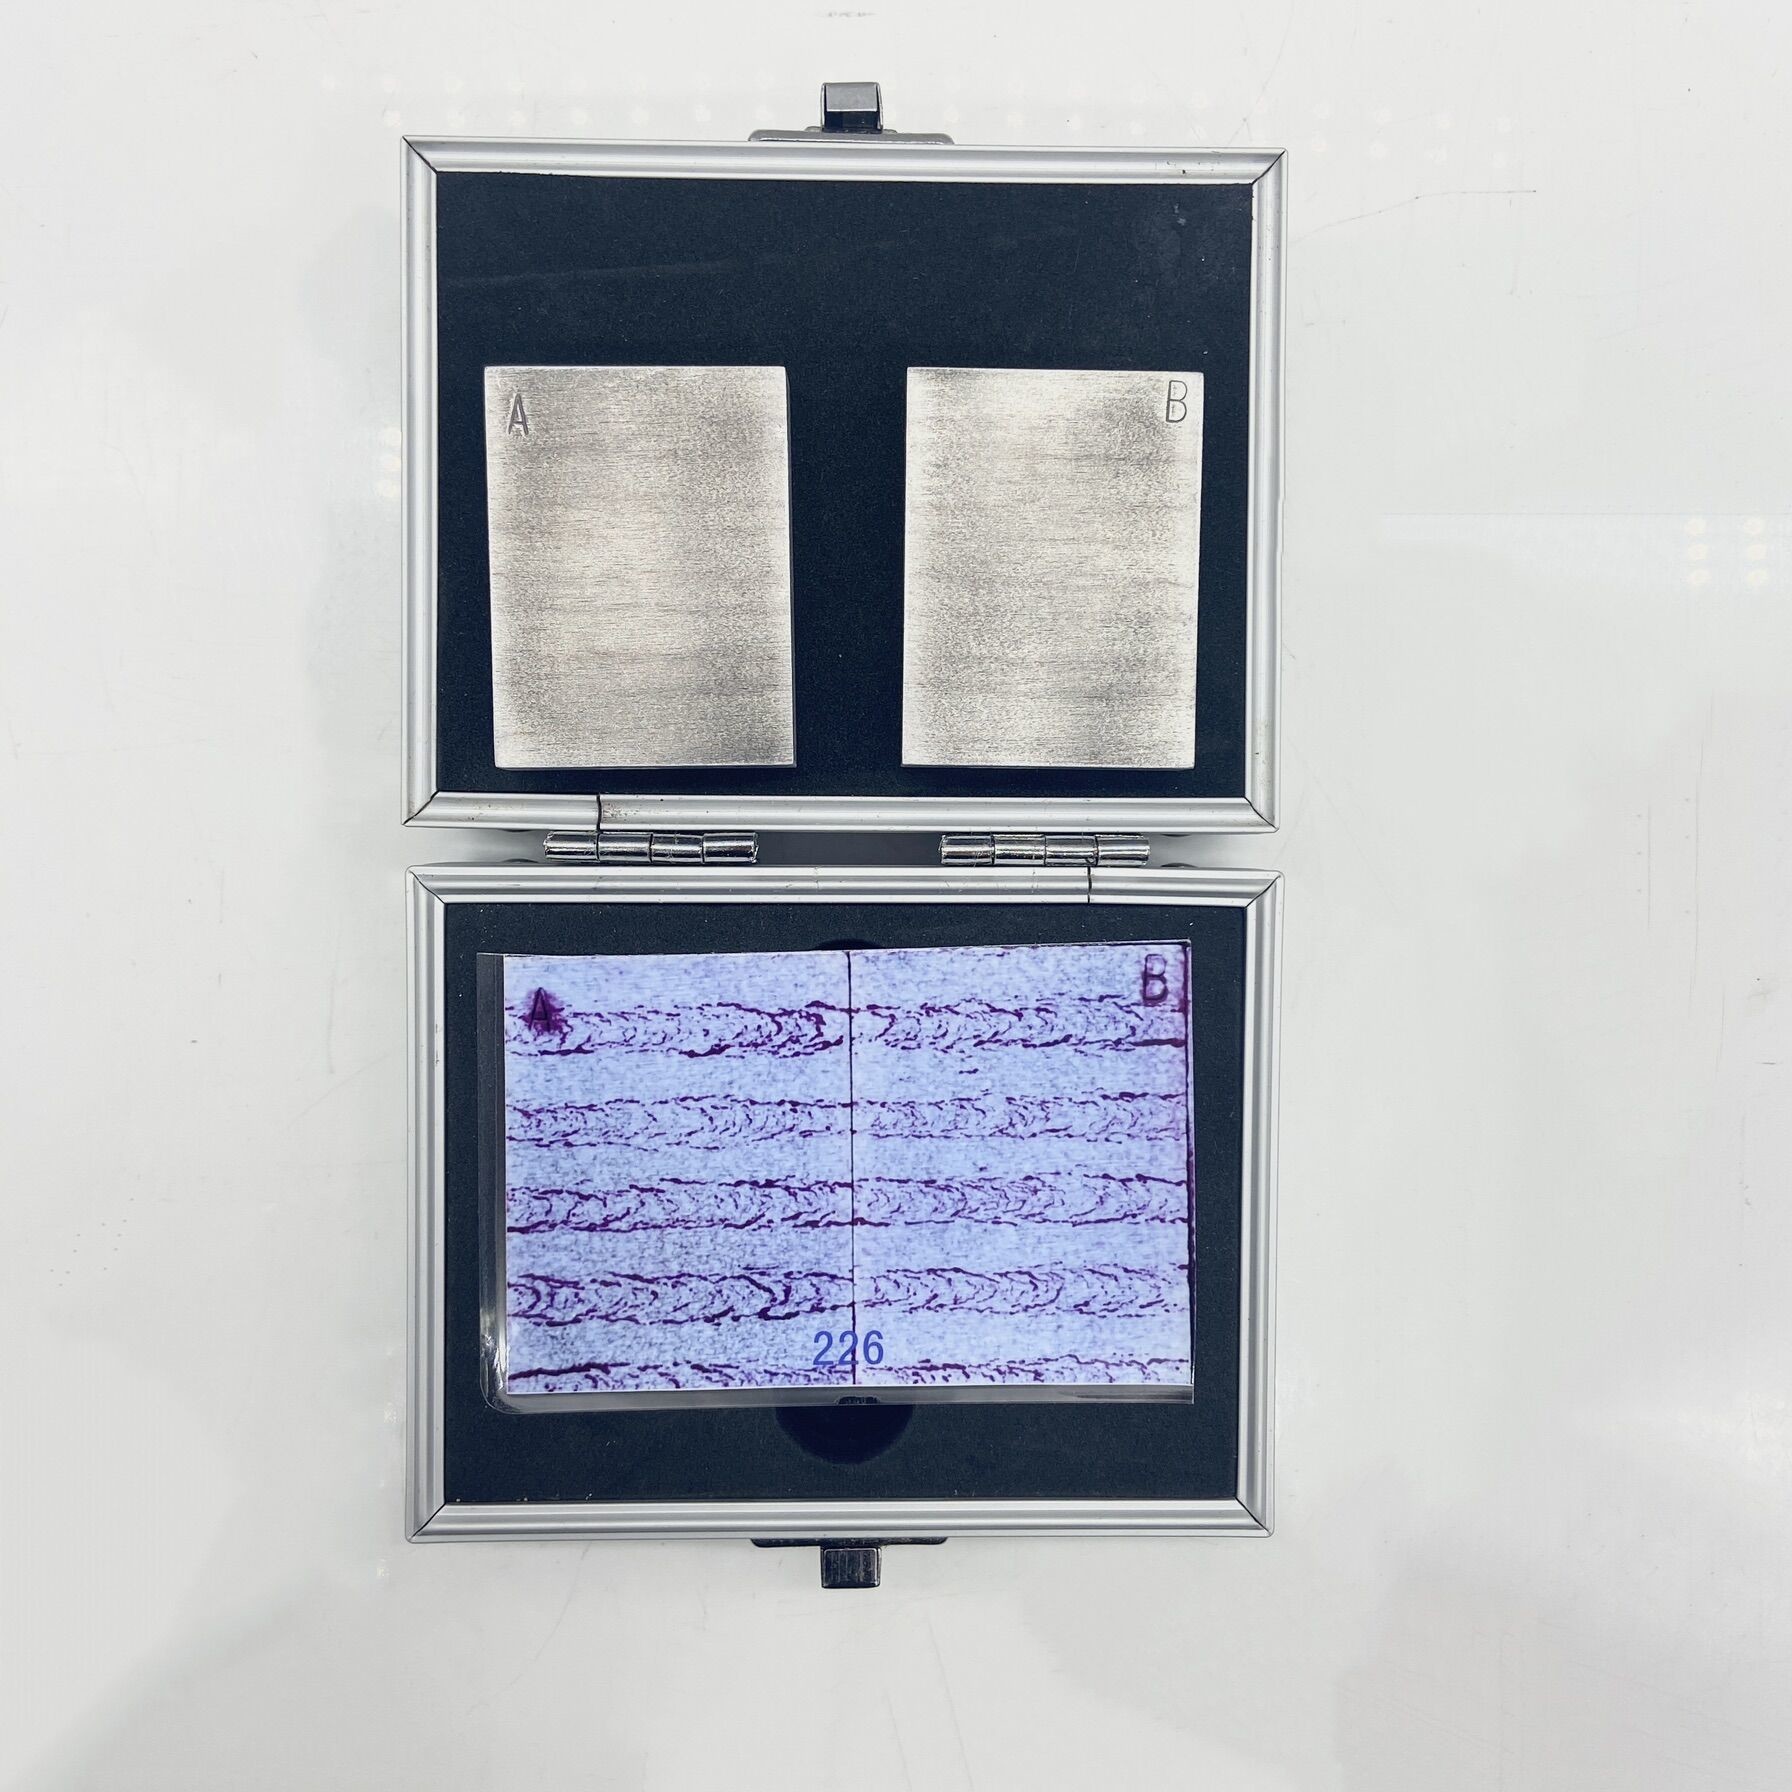 A
B
A
B
226